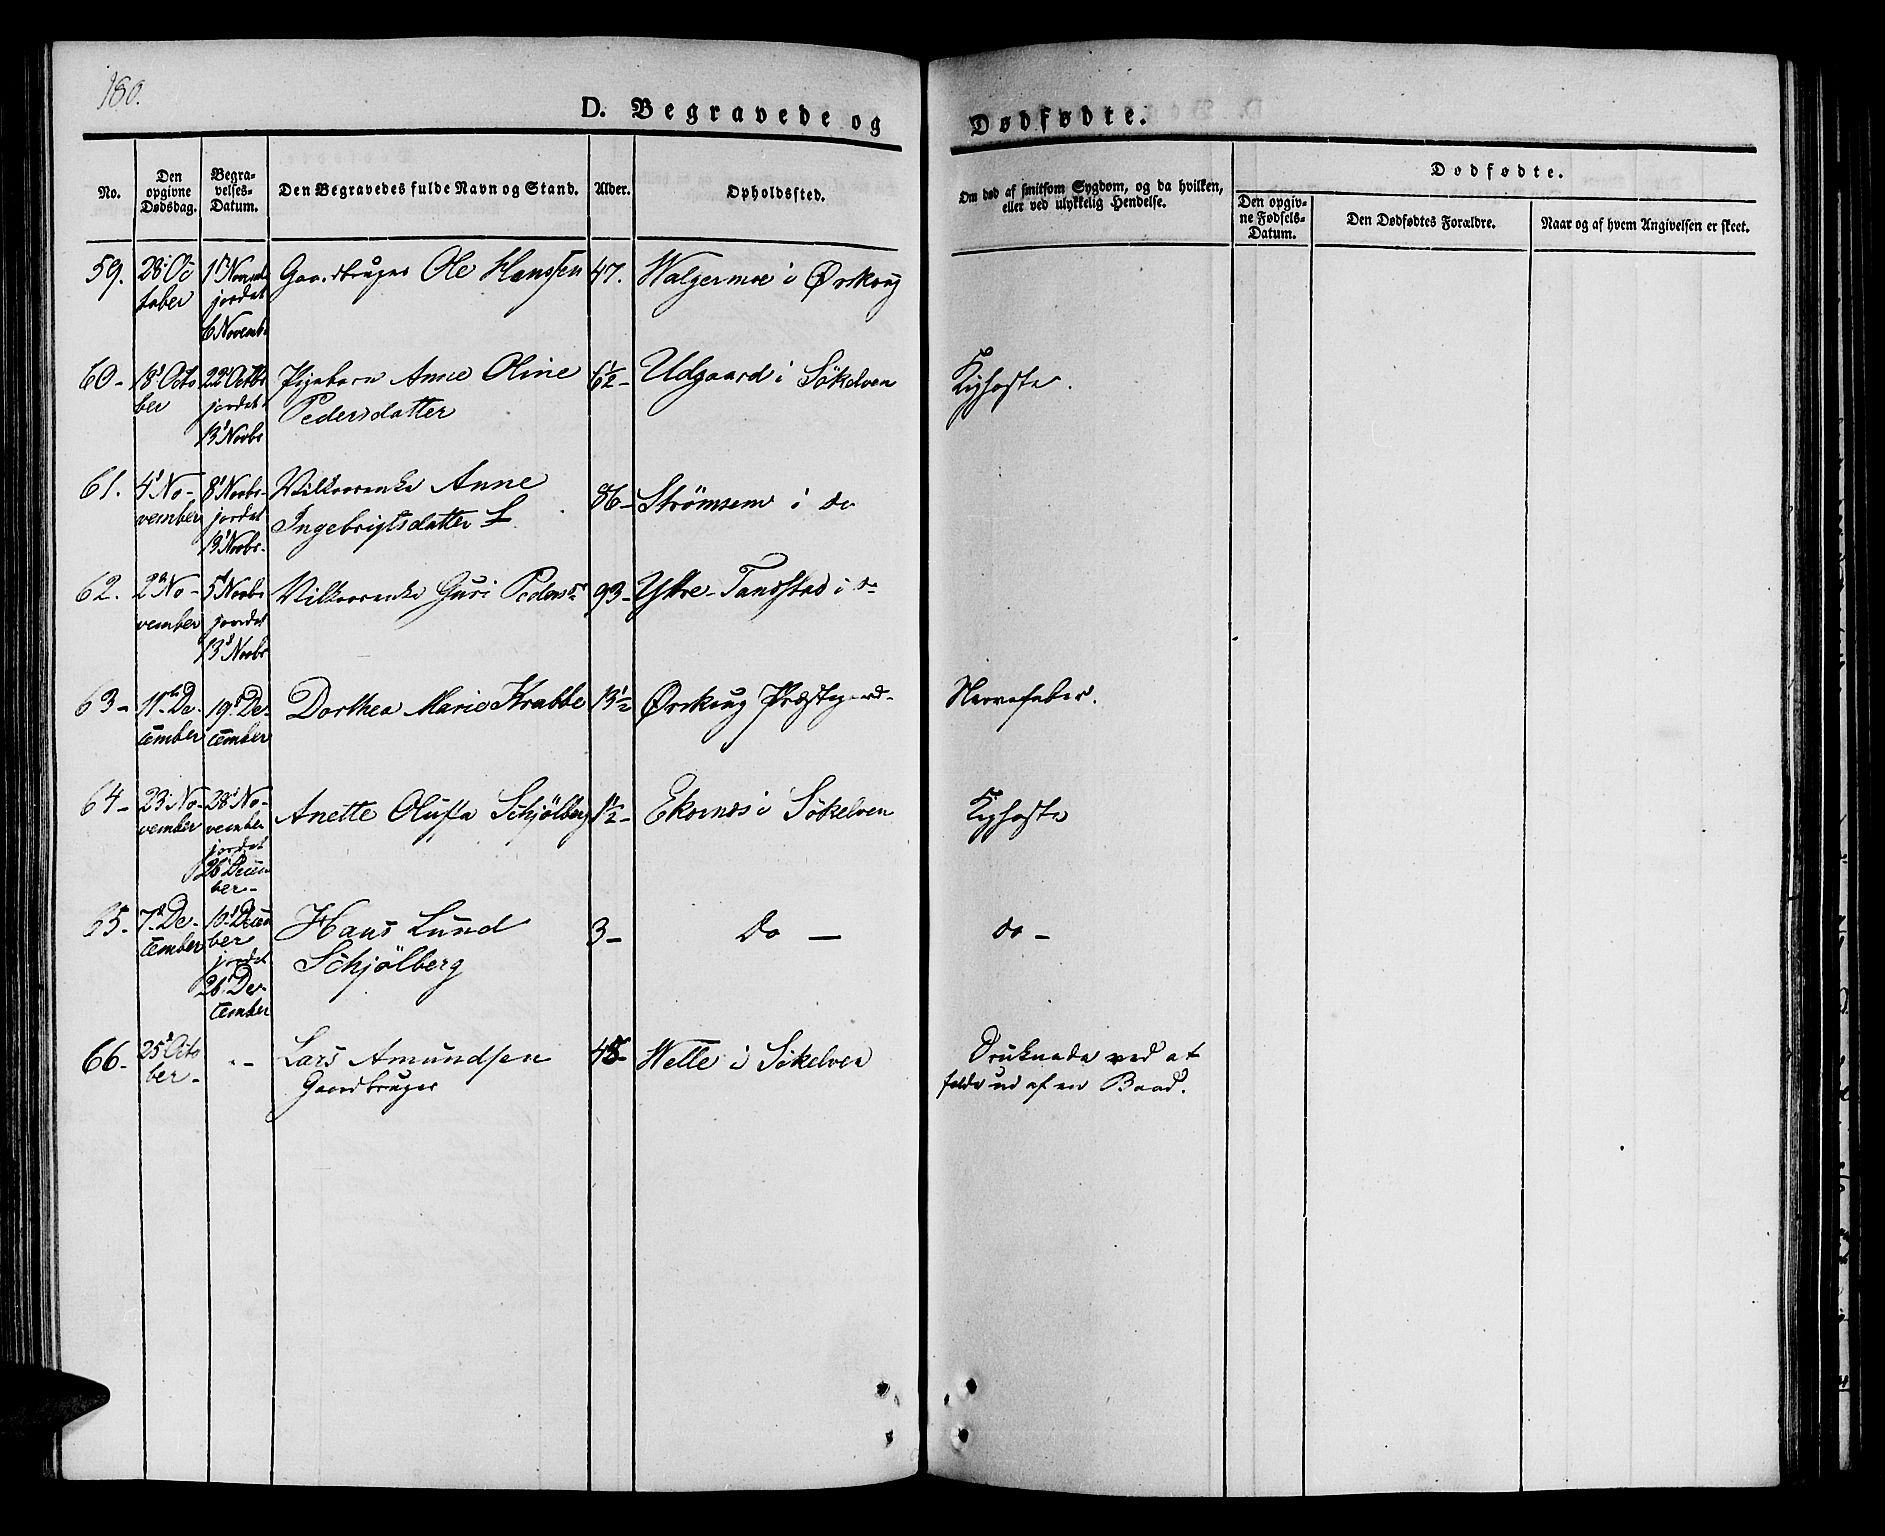 180.
D. Begravede og Dødfødte.
No.
Den opgivne Dødsdag.
Begravelses-Datum.
Den Begravedes fulde Navn og Stand.
Alder.
Opholdssted.
Om død af smitsom Sygdom, og da hvilken,
eller ved ulykkelig Hendelse.
Dødfødte.
Den opgiv-
ne Fødsels-
Datum.
Den Dødfødtes Forældre.
Naar og af hvem Angivelsen er skeet.
59. 28 Oc
tober
jordet
6 Novemb
Gaardbruger Ole Hanssen 47. Walgermoe i Ørskoug
60- 18 Octo
ber
22 Octbr
jordet
13 Novbr
Pigebarn Anne Oline
Pedersdatter
6½- Udgaard i Sökelven
Kighoste.
61. 4 No-
vember
8 Novbr-
jordet
13 Novbr-
Vilkorenke Anne
Ingebrigtsdatter
86- Strömsem i do
62. 2 No-
vember
5 Novbr
jordet
13 Novbr
Vilkorenke Guri Pedersd 93- Ytre-Tandstad i do
63- 11 De-
cember
19 De-
cember
Dorthea Marie Krabbe 13½ Ørskoug Præstegaard-
Nervefeber.
64- 23 No-
vember
28 No-
vember
jordet
26 Decem
ber-
Anette Olufa Schjölberg 1½- Ekornes i Sökelven
Kighoste
65- 7 De-
cember
10 Decem
ber
jordet
26 De-
cember
Hans Lund
Schjölberg
3- Do - do -
66- 25 Octo
ber-
Lars Amundsen
Gaardbruger
Welle i Sökelven
Druknede ved at
falde ud af en Baad.